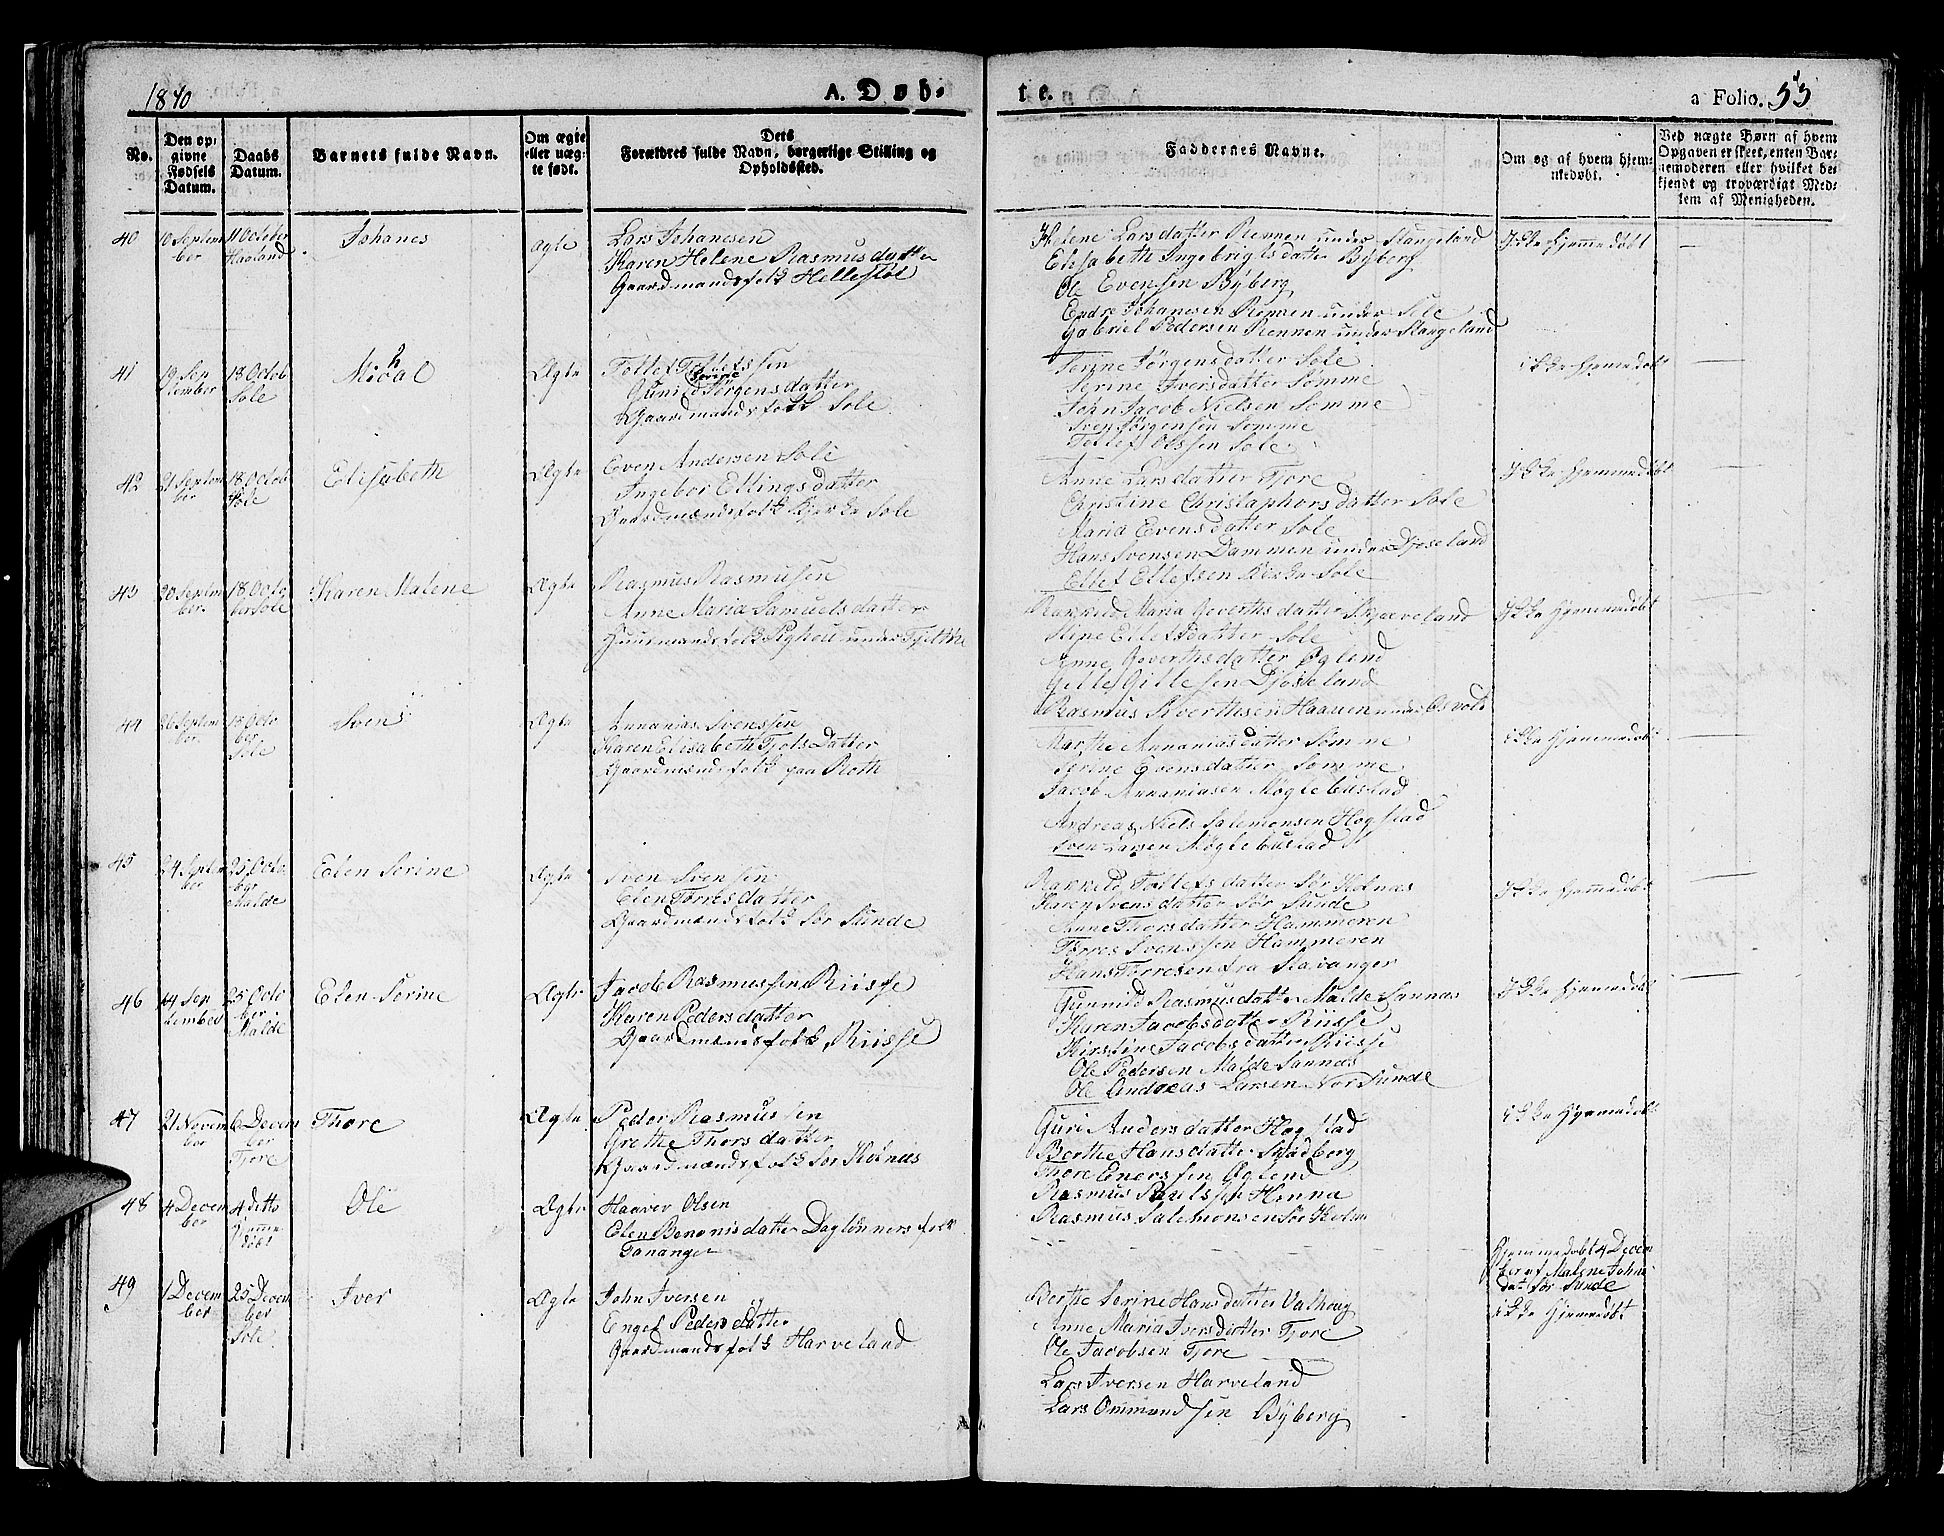 1840
A. Døb-
te.
a Folio. 55
No.
Den op-
givne
Fødsels
Datum.
Daabs
Datum.
Barnets fulde Navn.
Om ægte
eller uæg-
te født.
Dets
Forældres fulde Navn, borgerlige Stilling og
Opholdssted.
Faddernes Navne.
Om og af hvem hjem-
medøbt.
Ved uægte Børn af hvem
Opgaven er skeet, enten Bar-
nemoderen eller hvilket be-
kjendt og troværdigt Med-
lem af Menigheden.
40
10 Septem
ber
11 October
Haaland
Johanes
Ægte
Lars Johanesen
Karen Helene Rasmusdatter
Gaardmandsfolk Hellestøl
Helene Larsdatter Rennen under Stangeland
Elisabeth Ingebrigtsdatter Byberg
Ole Evensen Byberg
Endre Johanesen Rennen under Sole
Gabriel Pedersen Rennen under Stangeland
Ikke Hjemmedøbt
41
19 Sep
tember
18 Octob
Sole
Michal
Ægte
Tollef Tollefssen
Gunild Serine Jørgensdatter
Gaardmandsfolk Sole
Serine Jørgensdatter Sole
Serine Iversdatter Sømme
John Jacob Nielsen Sømme
Sven Jørgensen Sømme
Tollef Olssen Sole
ikke Hjemmedøbt
42
21 Septem
ber
18 Octob
Sole
Elisabeth
Ægte
Even Andersen Sole
Ingebor Ellingsdatter
Gaardmændsfolk Kirke Sole
Anne Larsdatter Tjore
Christine Christophorsdatter Sole
Maria Evensdatter Sole
Hans Svensen Dammen under Djoseland
Ellef Ellefsen Kirke Sole
Ikke Hjemmedøbt
43
20 Septem
ber
18 Octo
ber Sole
Karen Malene
Ægte
Rasmus Rasmussen
Anne Maria Samuelsdatter
Huusmandsfolk under
Maria Goverthsdatter Skjæveland
Stine Ellefsdatter Sole
Anne Goverthsdatter Øglend
Gitle Gitlesen Djoseland
Rasmus Haauen under Osvold
Ikke Hjemmedøbt
44
26 Septem
ber
18 Octo
ber
Sole
Sven
Ægte
Annanias Svenssen
Karen Elisabeth Datter
Gaardmændsfolk paa Roth
Marthe Annaniasdatter Sømme
Serine Evensdatter Sømme
Jacob Annaniasen Møglebustad
Andreas Niels Salemonsen Hogstad
Sven Larsen Møglebustad
ikke Hjemmedøbt
45
24 Septem
ber
25 Octo
ber
Malde
Elen Serine
Ægte
Sven Svensen
Elen Torresdatter
Gaardmændsfolk Sør Sunde
Rannild Tollefsdatter Sør Kolnæs
Karen Svensdatter Sør Sunde
Anne Thorsdatter Hammeren
Torres Svenssen Hammeren
Hans Torresen fra Stavanger
Ikke Hjemmedøbt
46
14 Sep
tember
25 Octo
ber
Malde
Elen Serine
Ægte
Jacob Rasmussen Riisse
Karen Pedersdatter
Gaardmændsfolk Riisse
Gunnild Rasmusdatter Malde Sannæs
Karen Jacobsdatter Riisse
Kirstine Jacobsdatter Riisse
Ole Pedersen Malde Sannæs
Ole Andreas Larsen Nor Sunde
Ikke Hjemmedøbt
47
21 Novem
ber
6 Decem
ber
Tjore
Thore
Ægte
Peder Rasmussen
Grethe Thorsdatter
Gaardmændsfolk Sør Kolnæs
Guri Andersdatter Hogstad
Berthe Hansdatter Skjødberg
Thore Enerssen Øglend
Rasmus Paulssen Hinna
Rasmus Salemonsen Sør Kolnæ
ikke Hjemmedøbt
48
4 Decem
ber
4 ditto
hjemme
døbt
Ole
Ægte
Haaver Olsen
Elen Benonisdatter Daglønnersfolk
Tananger
Hjemmedøbt 4 Decem
ber af Malene Johns
dat Sør Sunde
49
1 Decem
ber
25 Decem
ber
Sole
Iver
Ægte
John Iversen
Engel Pedersdatter
Gaardmandsfolk Harveland
Berthe Serine Hansdatter Valhoug
Anne Maria Iversdatter Tjore
Ole Jacobsen Tjore
Lars Iversen Harveland
Lars Ommundssen Byberg
ikke Hjemmedøbt